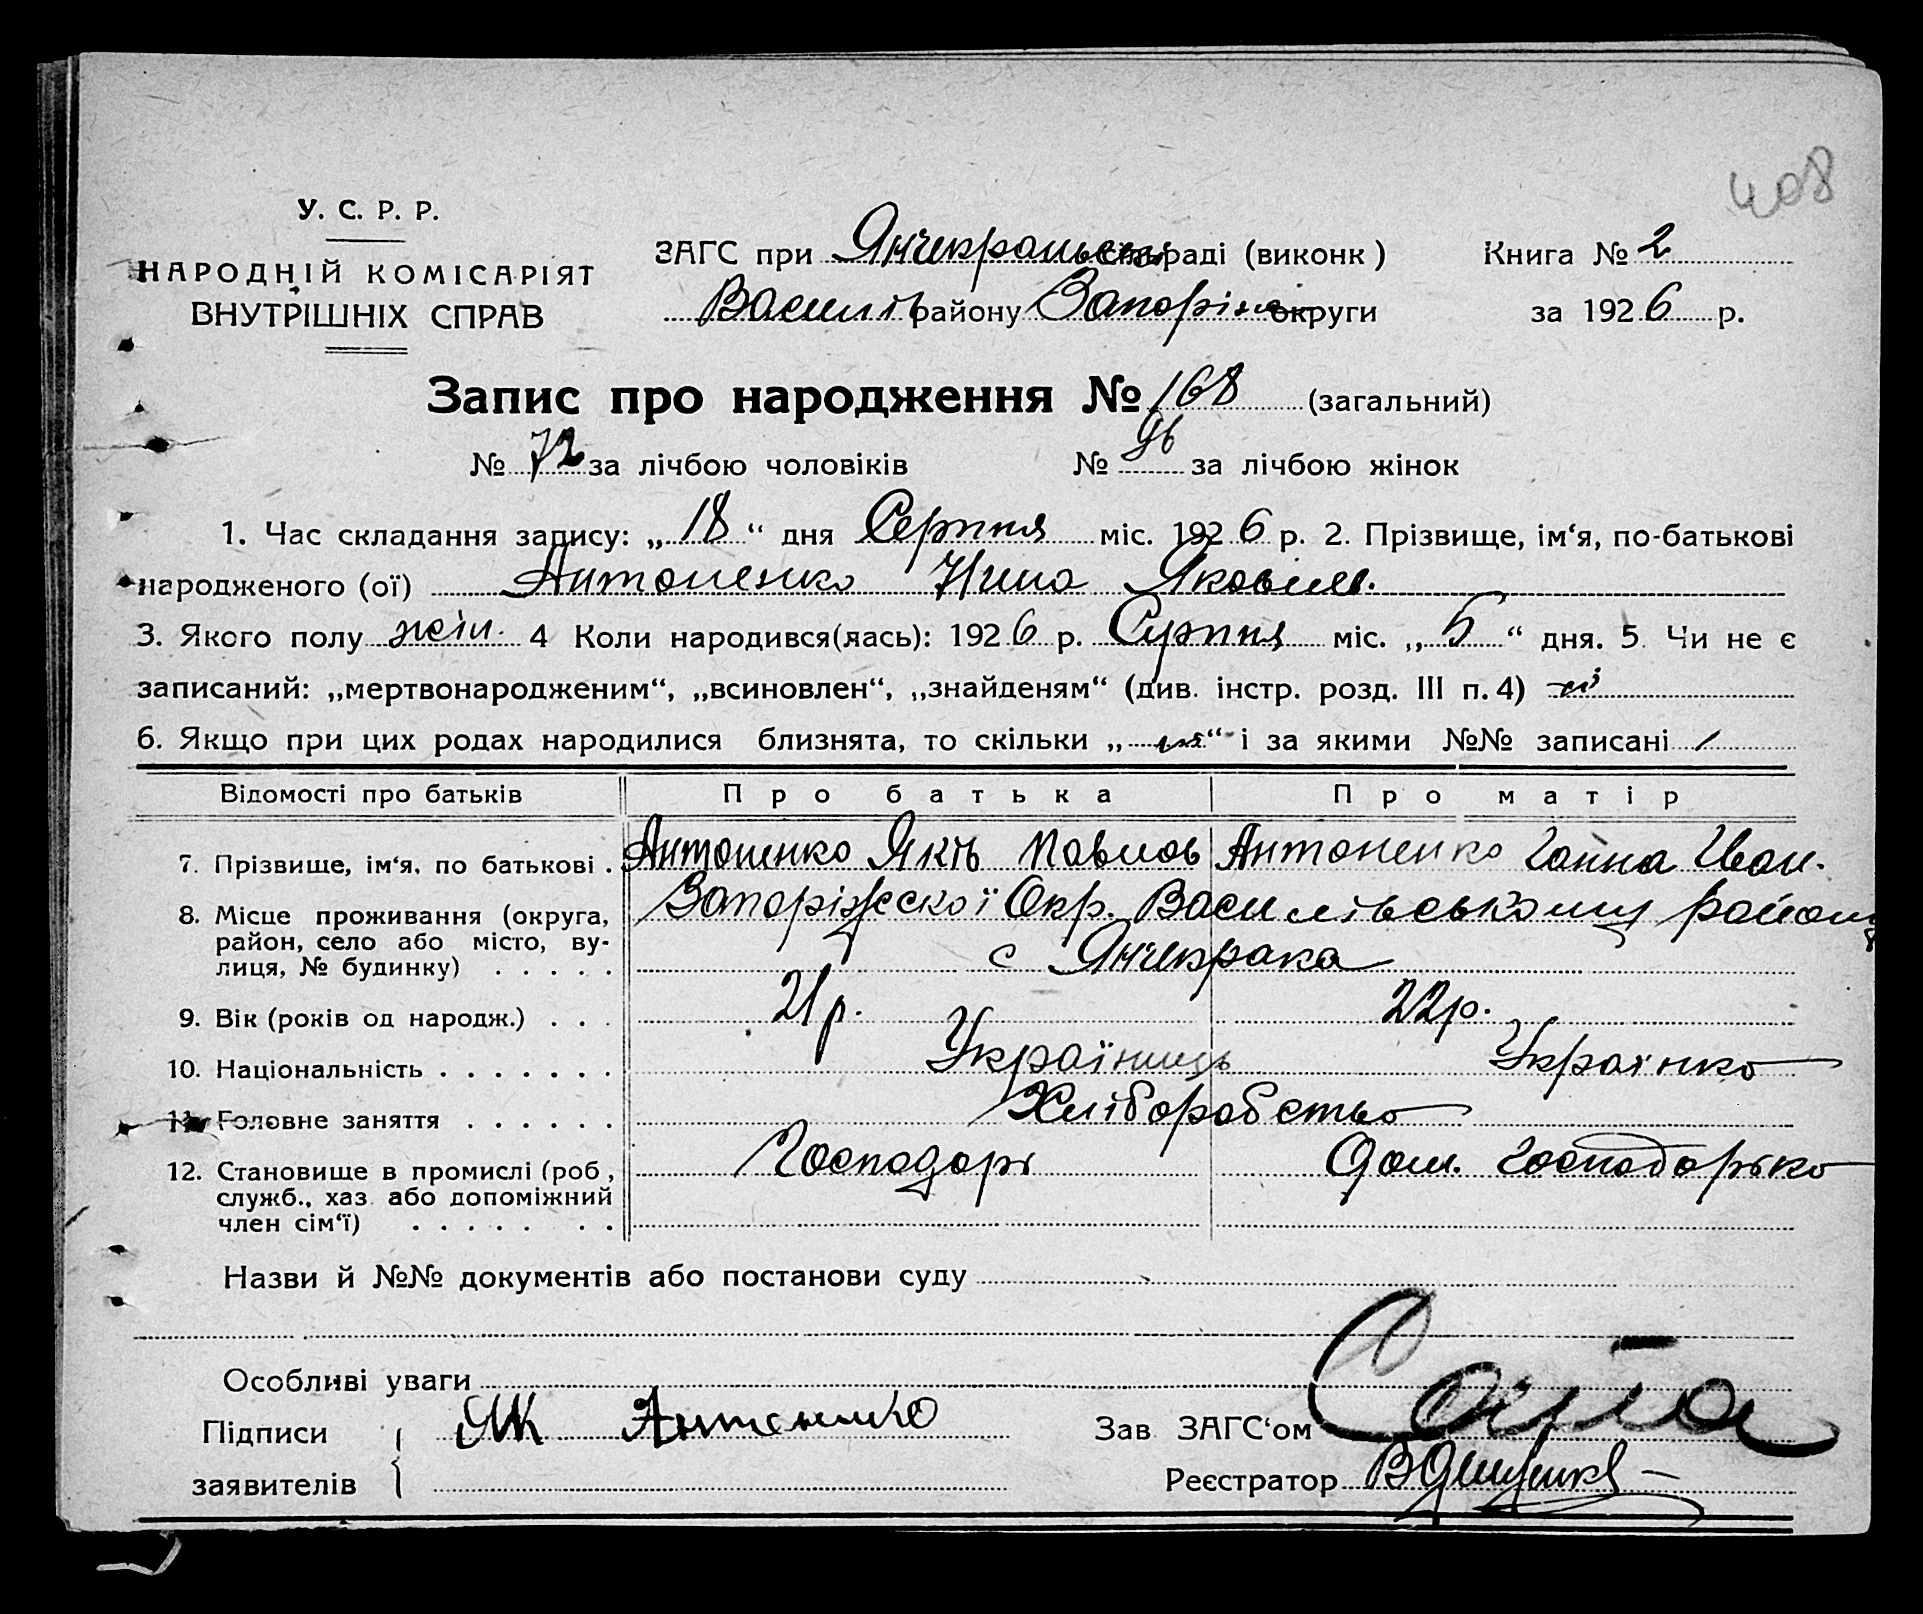 408
У. С. Р. Р.
НАРОДНІЙ КОМІСАРІЯТ
ВНУТРІШНІХ СПРАВ
ЗАГС при Янчекракськ сільраді (виконк) Книга № 2
Василів району Запоріж округи за 1926 р.
Запис про народження № 168 (загальний)
№ 72 за лічбою чоловіків № 96 за лічбою жінок
1. Час складання запису: „18“ дня Серпня міс. 1926 р. 2. Прізвище, ім‘я, по-батькові
народженого (ої) Антоненко Нина Яковівн.
3. Якого полу жін. 4 Коли народився(лась): 1926 р. Серпня міс. „5“ дня. 5. Чи не є
записаний: „мертвонародженим“, „всиновлен“, „знайденям“ (див. інстр. розд. III п. 4) ні
6. Якщо при цих родах народилися близнята, то скільки „ “ і за якими №№ записані /
Відомості про батьків Про батька Про матір
7. Прізвище, ім‘я, по батькові . Антоненко Яків Павлов Антоненко Ганна Иван.
8. Місце проживання (округа, Запоріжскої Окр. Василівському району
район, село або місто, ву-
лиця, № будинку) . . . . . с Янчекрака
9. Вік (років од народж.) . . . 21 р. 22 р.
10. Національність . . . . . . . Українць Українко
11. Головне заняття . . . . . . Хліборобство
12. Становище в промислі (роб., Господарь Дом. господарько
служб., хаз. або допоміжний
член сім‘ї) . . . . . . .
Назви й №№ документів або постанови суду
Особливі уваги
Підписи ЯК Антоненко Зав ЗАГС‘ом
заявителів Реєстратор